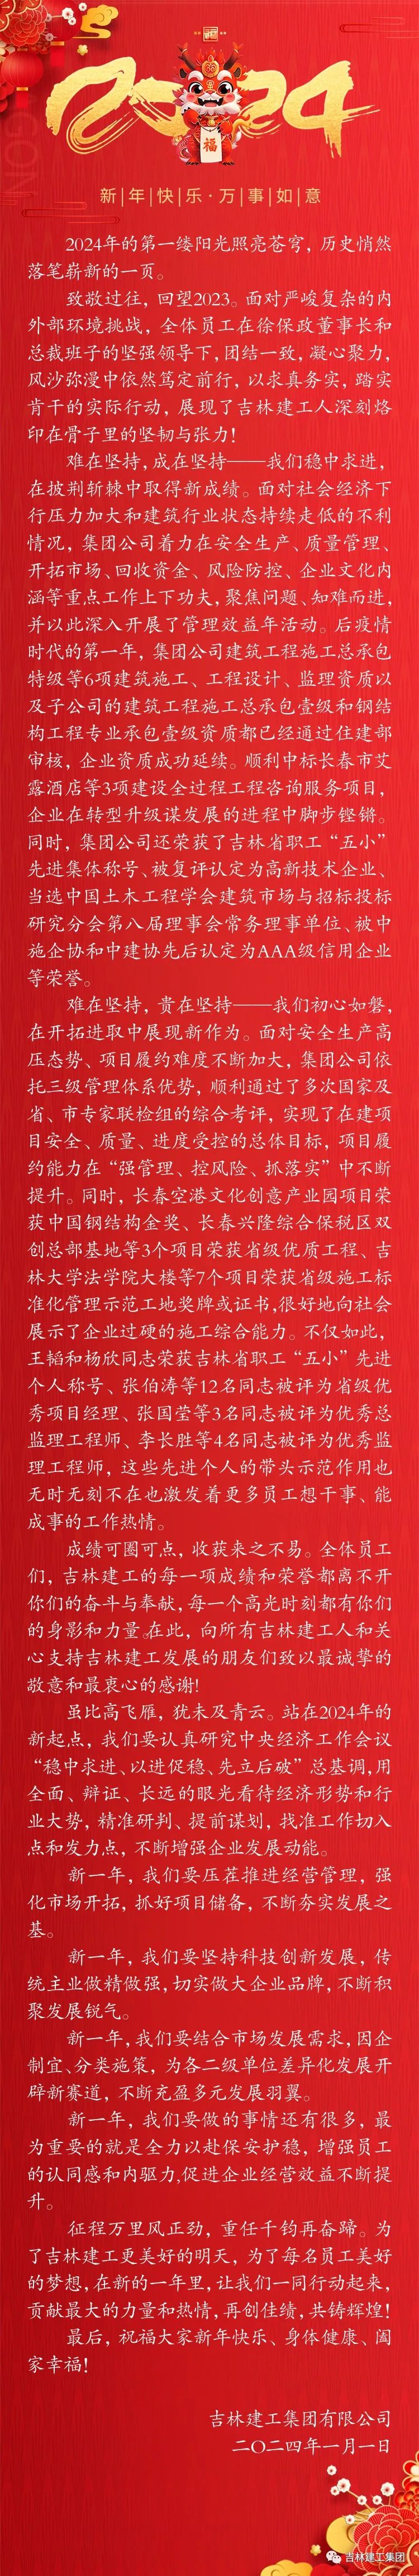 2024
新|年|快|乐·万|事|如|意
福
2024年的第一缕阳光照亮苍穹，历史悄然
落笔崭新的一页。
致敬过往，回望2023。面对严峻复杂的内
外部环境挑战，全体员工在徐保政董事长和
总裁班子的坚强领导下，团结一致，凝心聚力，
风沙弥漫中依然笃定前行，以求真务实，踏实
肯干的实际行动，展现了吉林建工人深刻烙
印在骨子里的坚韧与张力！
难在坚持，成在坚持——我们稳中求进，
在披荆斩棘中取得新成绩。面对社会经济下
行压力加大和建筑行业状态持续走低的不利
情况，集团公司着力在安全生产、质量管理、
开拓市场、回收资金、风险防控、企业文化内
涵等重点工作上下功夫，聚焦问题、知难而进，
并以此深入开展了管理效益年活动。后疫情
时代的第一年，集团公司建筑工程施工总承包
特级等6项建筑施工、工程设计、监理资质以
及子公司的建筑工程施工总承包壹级和钢结
构工程专业承包壹级资质都已经通过住建部
审核，企业资质成功延续。顺利中标长春市艾
露酒店等3项建设全过程工程咨询服务项目，
企业在转型升级谋发展的进程中脚步铿锵。
同时，集团公司还荣获了吉林省职工“五小”
先进集体称号、被复评认定为高新技术企业、
当选中国土木工程学会建筑市场与招标投标
研究分会第八届理事会常务理事单位、被中
施企协和中建协先后认定为AAA级信用企业
等荣誉。
难在坚持，贵在坚持——我们初心如磐，
在开拓进取中展现新作为。面对安全生产高
压态势、项目履约难度不断加大，集团公司依
托三级管理体系优势，顺利通过了多次国家及
省、市专家联检组的综合考评，实现了在建项
目安全、质量、进度受控的总体目标，项目履
约能力在“强管理、控风险、抓落实”中不断
提升。同时，长春空港文化创意产业园项目荣
获中国钢结构金奖、长春兴隆综合保税区双
创总部基地等3个项目荣获省级优质工程、吉
林大学法学院大楼等7个项目荣获省级施工标
准化管理示范工地奖牌或证书,很好地向社会
展示了企业过硬的施工综合能力。不仅如此，
王韬和杨欣同志荣获吉林省职工“五小”先进
个人称号、张伯涛等12名同志被评为省级优
秀项目经理、张国莹等3名同志被评为优秀总
监理工程师、李长胜等4名同志被评为优秀监
理工程师，这些先进个人的带头示范作用也
无时无刻不在也激发着更多员工想干事、能
成事的工作热情。
成绩可圈可点，收获来之不易。全体员工
们，吉林建工的每一项成绩和荣誉都离不开
你们的奋斗与奉献，每一个高光时刻都有你们
的身影和力量。在此，向所有吉林建工人和关
心支持吉林建工发展的朋友们致以最诚挚的
敬意和最衷心的感谢!
虽比高飞雁，犹未及青云。站在2024年的
新起点，我们要认真研究中央经济工作会议
“稳中求进、以进促稳、先立后破”总基调,用
全面、辩证、长远的眼光看待经济形势和行
业大势，精准研判、提前谋划，找准工作切入
点和发力点，不断增强企业发展动能。
新一年，我们要压茬推进经营管理，强
化市场开拓，抓好项目储备，不断夯实发展之
基。
新一年，我们要坚持科技创新发展，传
统主业做精做强，切实做大企业品牌，不断积
聚发展锐气。
新一年，我们要结合市场发展需求，因企
制宜、分类施策，为各二级单位差异化发展开
辟新赛道，不断充盈多元发展羽翼。
新一年，我们要做的事情还有很多，最
为重要的就是全力以赴保安护稳，增强员工
的认同感和内驱力,促进企业经营效益不断提
升。
征程万里风正劲，重任千钧再奋蹄。为
了吉林建工更美好的明天，为了每名员工美好
的梦想，在新的一年里，让我们一同行动起来，
贡献最大的力量和热情，再创佳绩，共铸辉煌！
最后，祝福大家新年快乐、身体健康、阖
家幸福！
吉林建工集团有限公司
二〇二四年一月一日
吉林建工集团